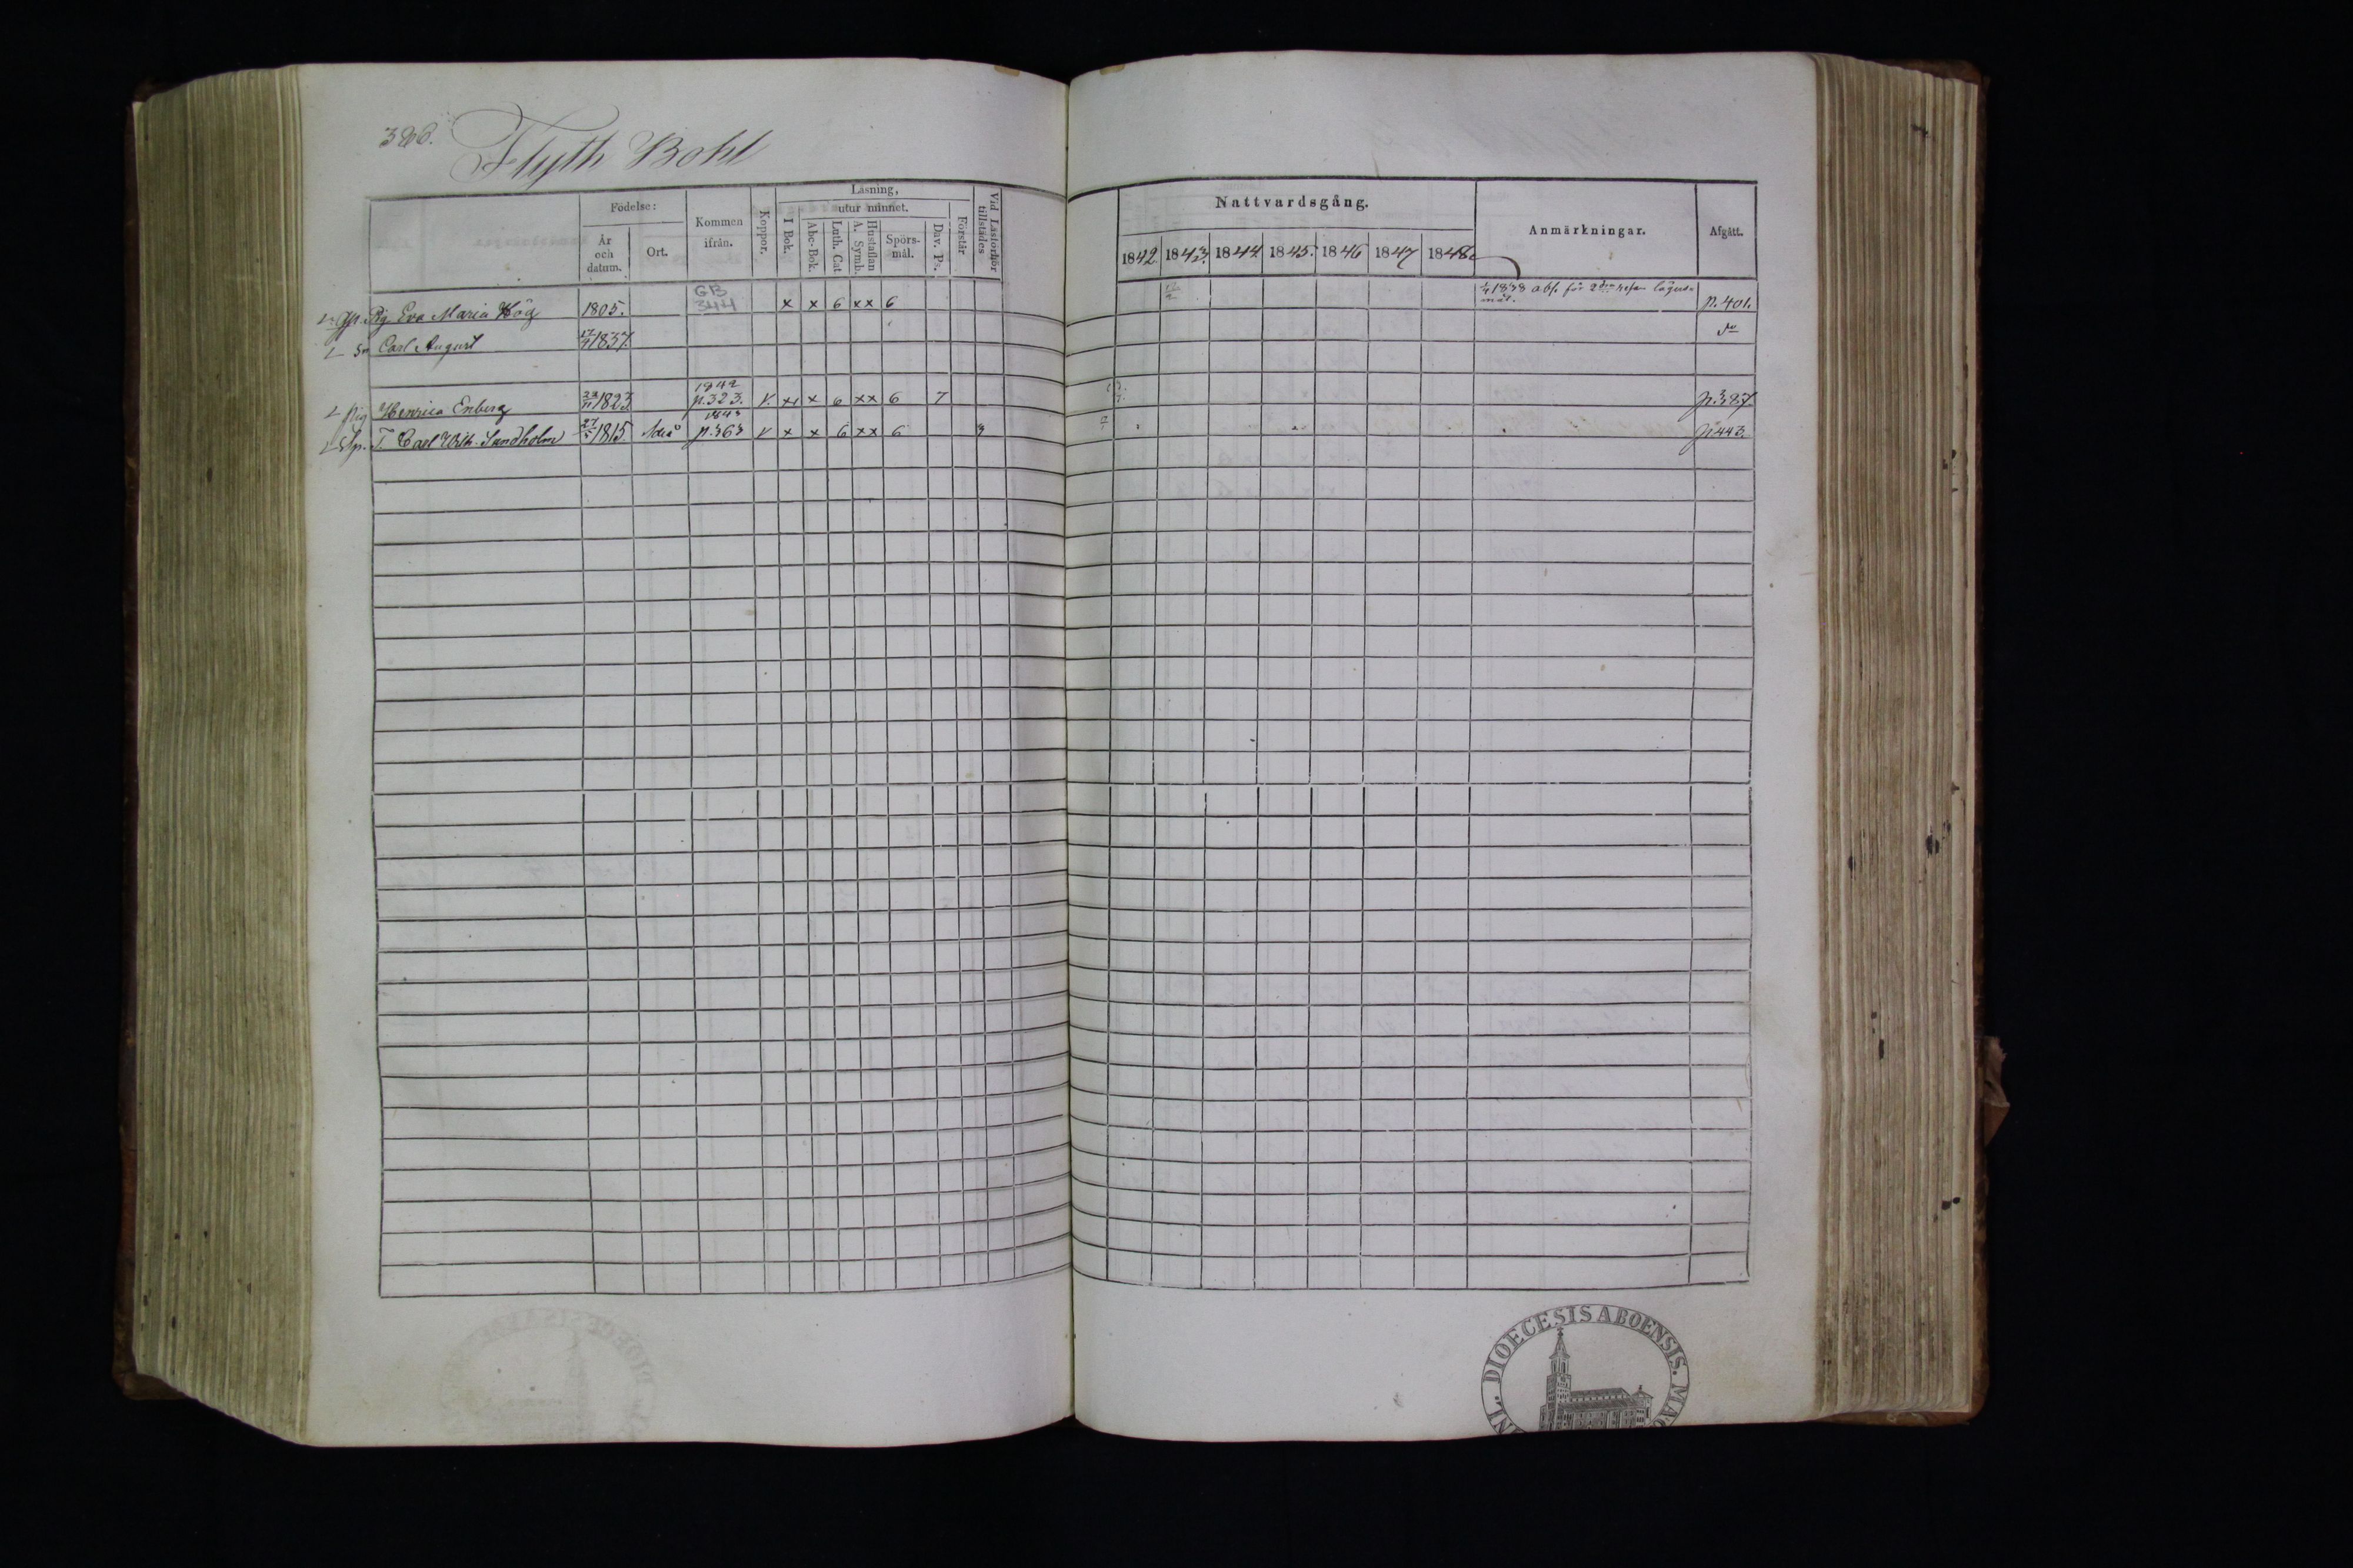 Flyth Bohl
Läsning,
Födelse:
utur minnet.
Nattvardsgång.
Kommen ifrån.
Koppor.
I Bok.
Abc-Bok.
Luth. Cat
Hustaflan A. Symb.
Spörs-mål.
Dav. Ps.
Förstår
Vid Läsförhör tillstädes
År och datum.
Ort.
Anmärkningar.
Afgått.
1842 1843. 1844 1845. 1846 1847 1848
Pig. Eva Maria Hög 1805. GB 344 x x 6 xx 6 1838 abs. för 2dra resan lägers-mål. p. 401.
Sn Carl August 17/9 1837. do
Pig Henrica Enberg 22/11 1823 1842 p. 323. V. xx x 6 xx 6 7 p. 387.
T. Carl Wilh. Sundholm 27/5 1815 1843 p. 363 V x x 6 xx 6 3 p. 443.
DIOECESIS ABOENSIS. MAG